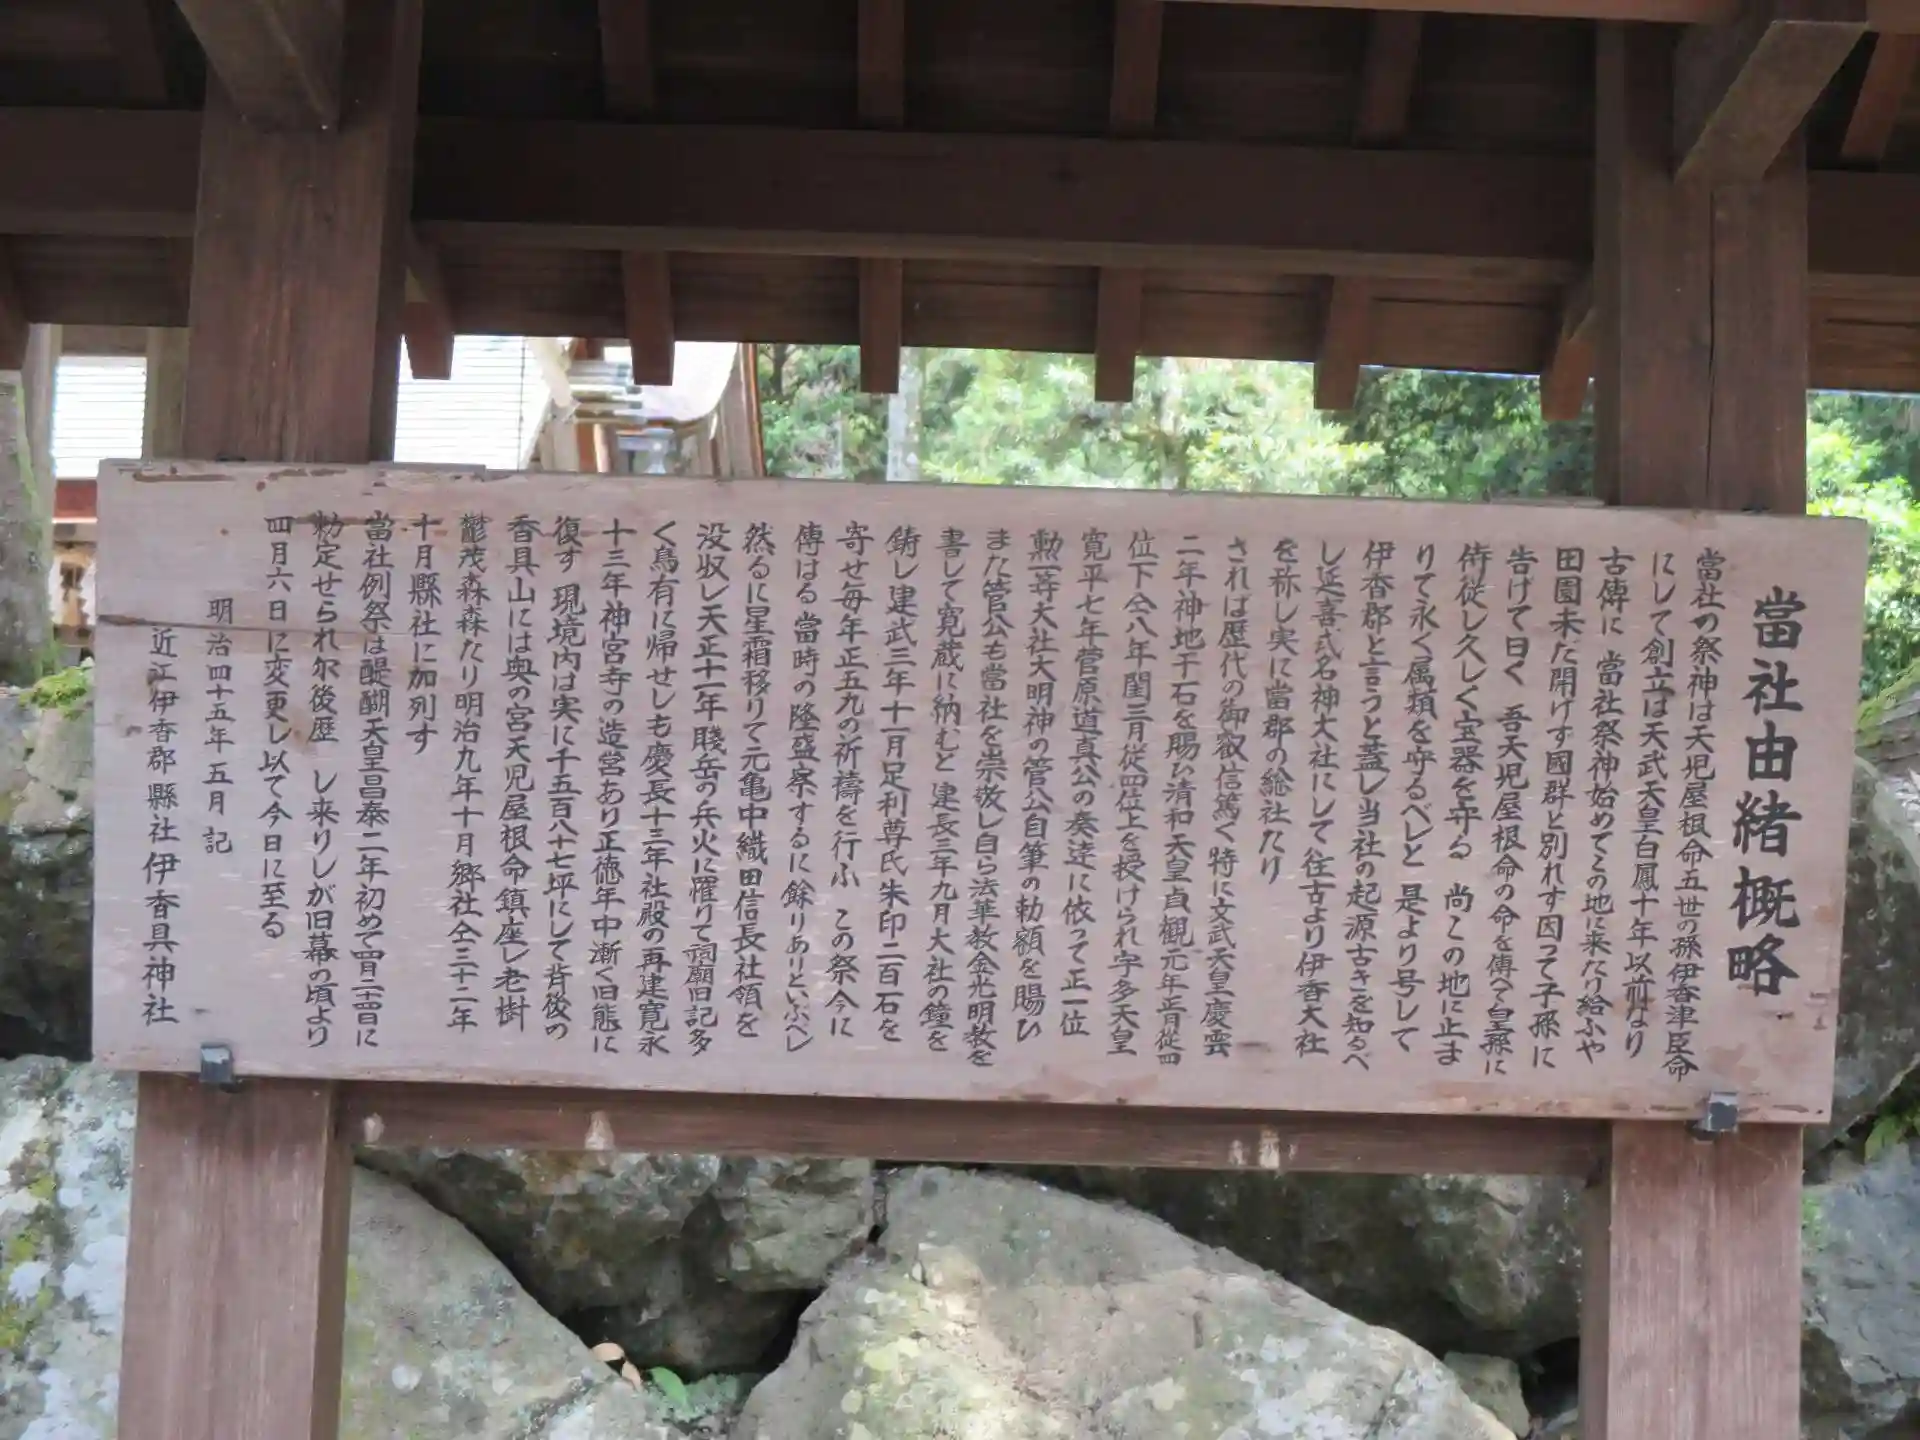 當社由緒概略
當社の祭神は天児屋根命五世の孫伊香津臣命
にして創立は天武天皇白鳳十年以前なり
古傳に 當社祭神始めてこの地に来たり給ふや
田園未た開けず國群と別れす因って子孫に
告げて曰く 吾天児屋根命の命を傳へて皇孫に
侍従し久しく宝器を守る 尚この地に止ま
りて永く属類を守るべしと 是より号して
伊香郡と言うと蓋し当社の起源古きを知るべ
し延喜式名神大社にして往古より伊香大社
を称し実に當郡の総社たり
されば歴代の御叡信篤く特に文武天皇慶雲
二年神地千石を賜い清和天皇貞観元年正月従四
位下仝八年閏三月従四位上を授けられ宇多天皇
寛平七年菅原道真公の奏達に依って正一位
勲一等大社大明神の管公自筆の勅額を賜ひ
また管公も當社を崇敬し自ら法華教金光明教を
書して寛蔵に納むと 建長三年九月大社の鐘を
鋳し建武三年十一月足利尊氏朱印二百石を
寄せ毎年正五九の祈禱を行ふ この祭今に
傳はる 當時の隆盛察するに餘りありといふべし
然るに星霜移りて元亀中織田信長社領を
没収し天正十一年賤岳の兵火に罹りて祠廟旧記多
く烏有に帰せしも慶長十三年社殿の再建寛永
十三年神宮寺の造営あり正徳年中漸く旧態に
復す 現境内は実に千五百八十七坪にして背後の
香具山には奥の宮天児屋根命鎮座し老樹
鬱茂森森たり明治九年十月郷社仝三十二年
十月縣社に加列す
當社例祭は醍醐天皇昌泰二年初めて四月二十四日に
勅定せられ尓後歴 し来りしが旧幕の頃より
四月六日に変更し以て今日に至る
明治四十五年五月 記
近江伊香郡縣社伊香具神社